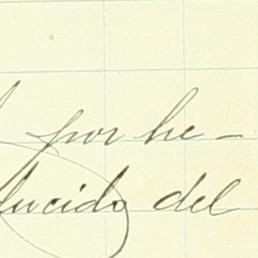 por he-
ducido del